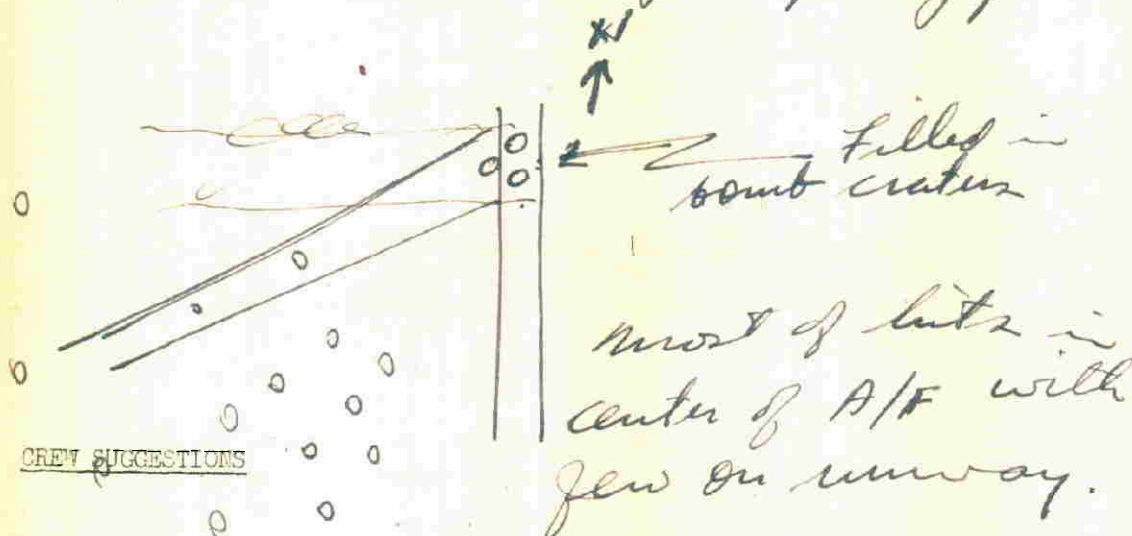 N
Filled in
bomb craters
most of hits in
center of A/F with
few on runway.
CREW SUGGESTIONS